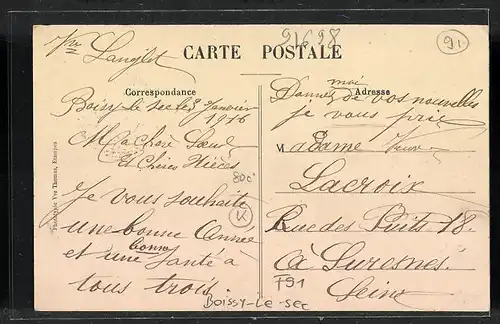 Vve Langlet
91698
91
CARTE POSTALE
Correspondance
Adresse
Boissy le sec le 8 Janvier
1916
Ma chère Sœur
et Chères Nièces
80c
Je vous souhaite
une bonne Année
et une bonne Santé à
tous trois.
Donnez moi de vos nouvelles
je vous prie
Madame Veuve
Lacroix
Rue des Puits 18.
à Suresnes.
Seine
F91
BOISSY-LE-SEC
Vve Thomas, Etampes